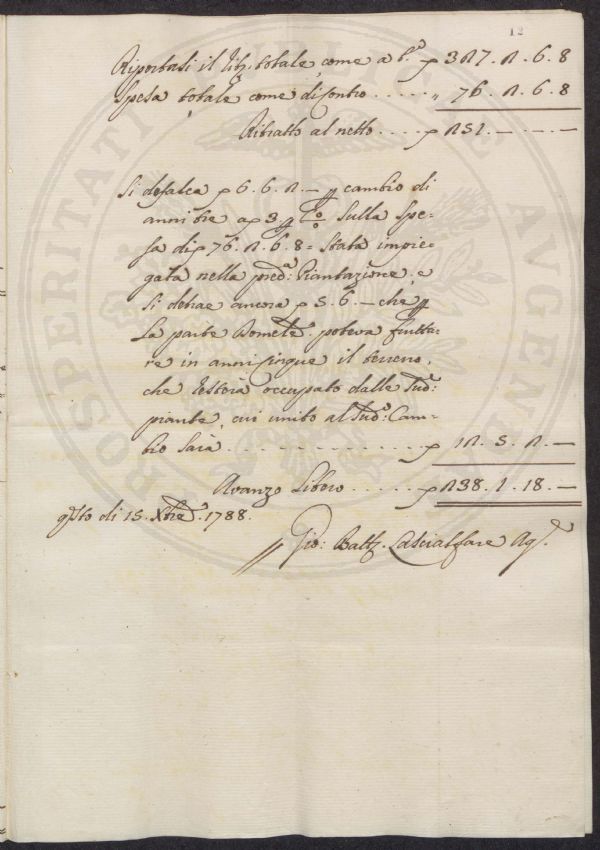 12
Riportasi il Rih: totale come a t.° p 327. 2. 6. 8
Spesa totale come di contro ..... „ 76. 2. 6. 8
Ritratto al netto .... p 251. — . — . —
Si defalca p 6. 6. 2. — p cambio di
anni tre a p 3. p C.o Sulla Spe=
sa di p 76. 2. 6. 8 = Stata impie=
gata nella pred.a: Piantazione, e
Si detrae ancora p 5. 6. — che p
La parte Domcle. poteva frutta=
re in anni cinque il terreno,
che resterà occupato dalle Sud.e:
piante, cui unito al Sud.o: Cam=
bio Sarà .............. p 12. 5. 2. —
Avanzo Libero ..... p 238. 1. 18. —
q.sto di 15. Xbre. 1788.
Gio: Batt. Lasciaffare Ag.e
PROSPERITATI PUBLICAE AUGENDAE